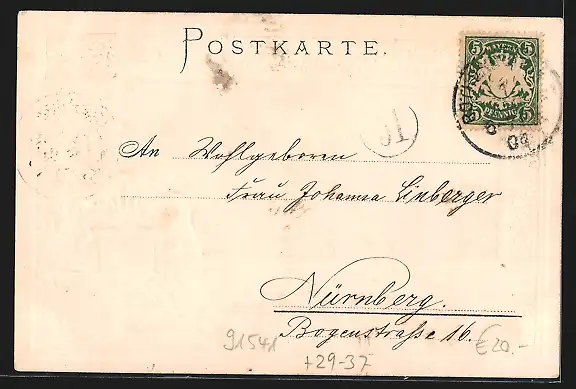 POSTKARTE.
5 BAYERN 5
PFENNIG
5 5
04
An Wohlgeboren
Frau Johanna Linberger
Nürnberg.
Bogenstraße 16.
€20.-
91541
+29-37